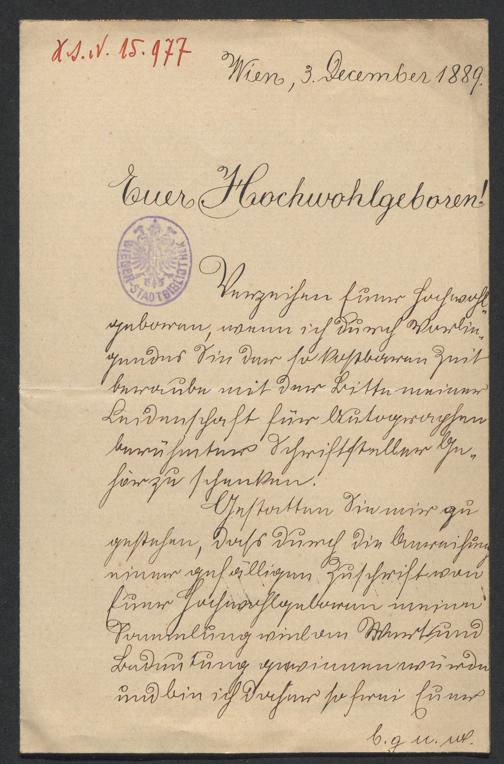 H.I.N. 15.977
Wien, 3. December 1889.
Euer Hochwohlgeboren!
WIENER-STADTBIBLIOTHEK
Verzeihen Euer Hochwohl-
geboren, wenn ich durch Vorlie-
gendes Sie der so kostbaren Zeit
beraube mit der Bitte meiner
Leidenschaft für Autographen
berühmter Schriftsteller Ge-
hör zu schenken.
Gestatten Sie mir zu
gestehen, dass durch die Anreihung
einer gefälligen Zuschrift von
Euer Hochwohlgeboren meine
Sammlung viel an Wert und
Bedeutung gewinnen würde
und bin ich daher so frei Euer